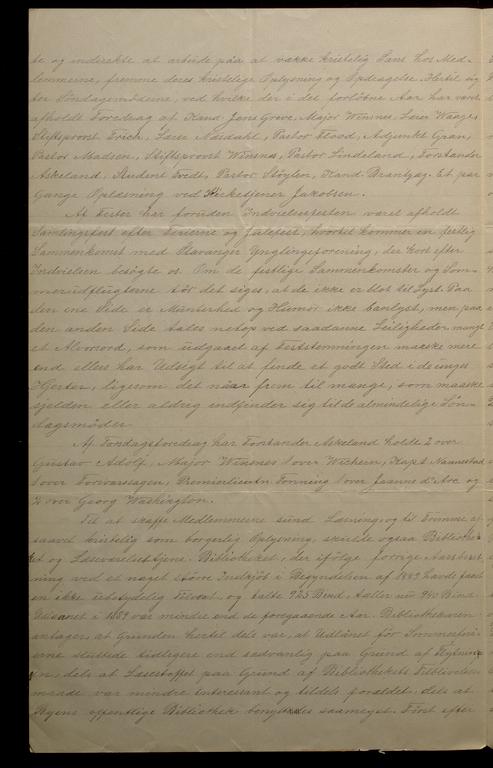 te og indirekte at arbeide paa at vække kristelig Sans hos Med-
lemmerne, fremme deres kristelige Oplysning og Opdragelse. Hertil sig-
ter Söndagsmöderne, ved hvilke der i det forlöbne Aar har været
afholdt Foredrag af Kand. Jens Greve, Major Winsnes, Lærer Waage,
Stiftsprovst Erich, Lærer Næsdahl, Pastor Flood, Adjunkt Gran,
Pastor Madsen, Stiftsprovst Winsnes, Pastor Lindeland, Forstander
Askeland, Student Tvedt, Pastor Stöylen, Kand. Brantzæg. Et par
Gange Oplæsning ved Kirketjener Jakobsen.
Af Fester har foruden Indvielsesfesten været afholdt
Samlingsfest efter Ferierne og Julefest, hvortil kommer en festlig
Sammenkomst med Stavanger Ynglingeforening, der kort efter
Indvielsen besögte os. Om de festlige Sammenkomster og Som-
merudflugterne tör det siges, at de ikke er blot til Lyst. Paa
den ene Side er Munterhed og Humor ikke banlyst, men paa
den anden Side tales netop ved saadanne Leiligheder mangt
et Alvorsord, som udgaaet af Feststemningen maaske mere
end ellers har Udsigt til at finde et godt Sted i de unges
Hjerter, ligesom det naar frem til mange, som maaske
sjelden eller aldrig indfinder sig til de almindelige Sön-
dagsmöder.
Af Torsdagsforedrag har Forstander Askeland holdt 2 over
Gustav Adolf, Major Winsnes 1 over Wichern, Kapt. Naanestad
1 over Forsvarssagen, Premierlieutn. Tönning 1 over Jeanne d'Arc og
2 over Georg Washington.
Til at skaffe Medlemmerne sund Læsning, og til Fremme af
saavel kristelig som borgerlig Oplysning, skulde ogsaa Bibliothek-
et og Læseværelset tjene. Bibliotheket, der ifölge forrige Aarsberet-
ning ved et noget större Indkjöb i Begyndelsen af 1889 havde faaet
en ikke ubetydelig Tilvæxt og talte 925 Bind, tæller nu 940 Bind.
Udlaanet i 1889 var mindre end de foregaaende Aar. Bibliothekaren
antager, at Grunden hertil dels var, at Udlaanet för Sommerferi-
erne sluttede tidligere end sædvanlig paa Grund af Flytning-
en, dels at Læsestoffet paa Grund af Bibliothekets Tilblivelses-
maade var mindre interessant og tildels forældet, dels at
Byens offentlige Bibliothek benyttedes saameget. Först efter